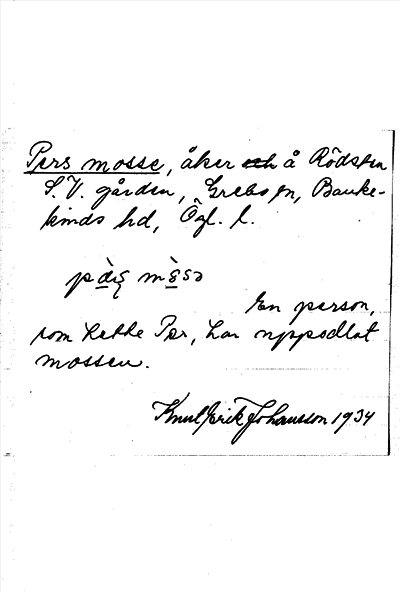 Pers mosse, åker och å Rödsten
S.V. gården, Grebo sn, Banke-
kinds hd, Ögl. l.
En person,
som hette Per, har uppodlat
mossen.
Knut Erik Johansson 1934